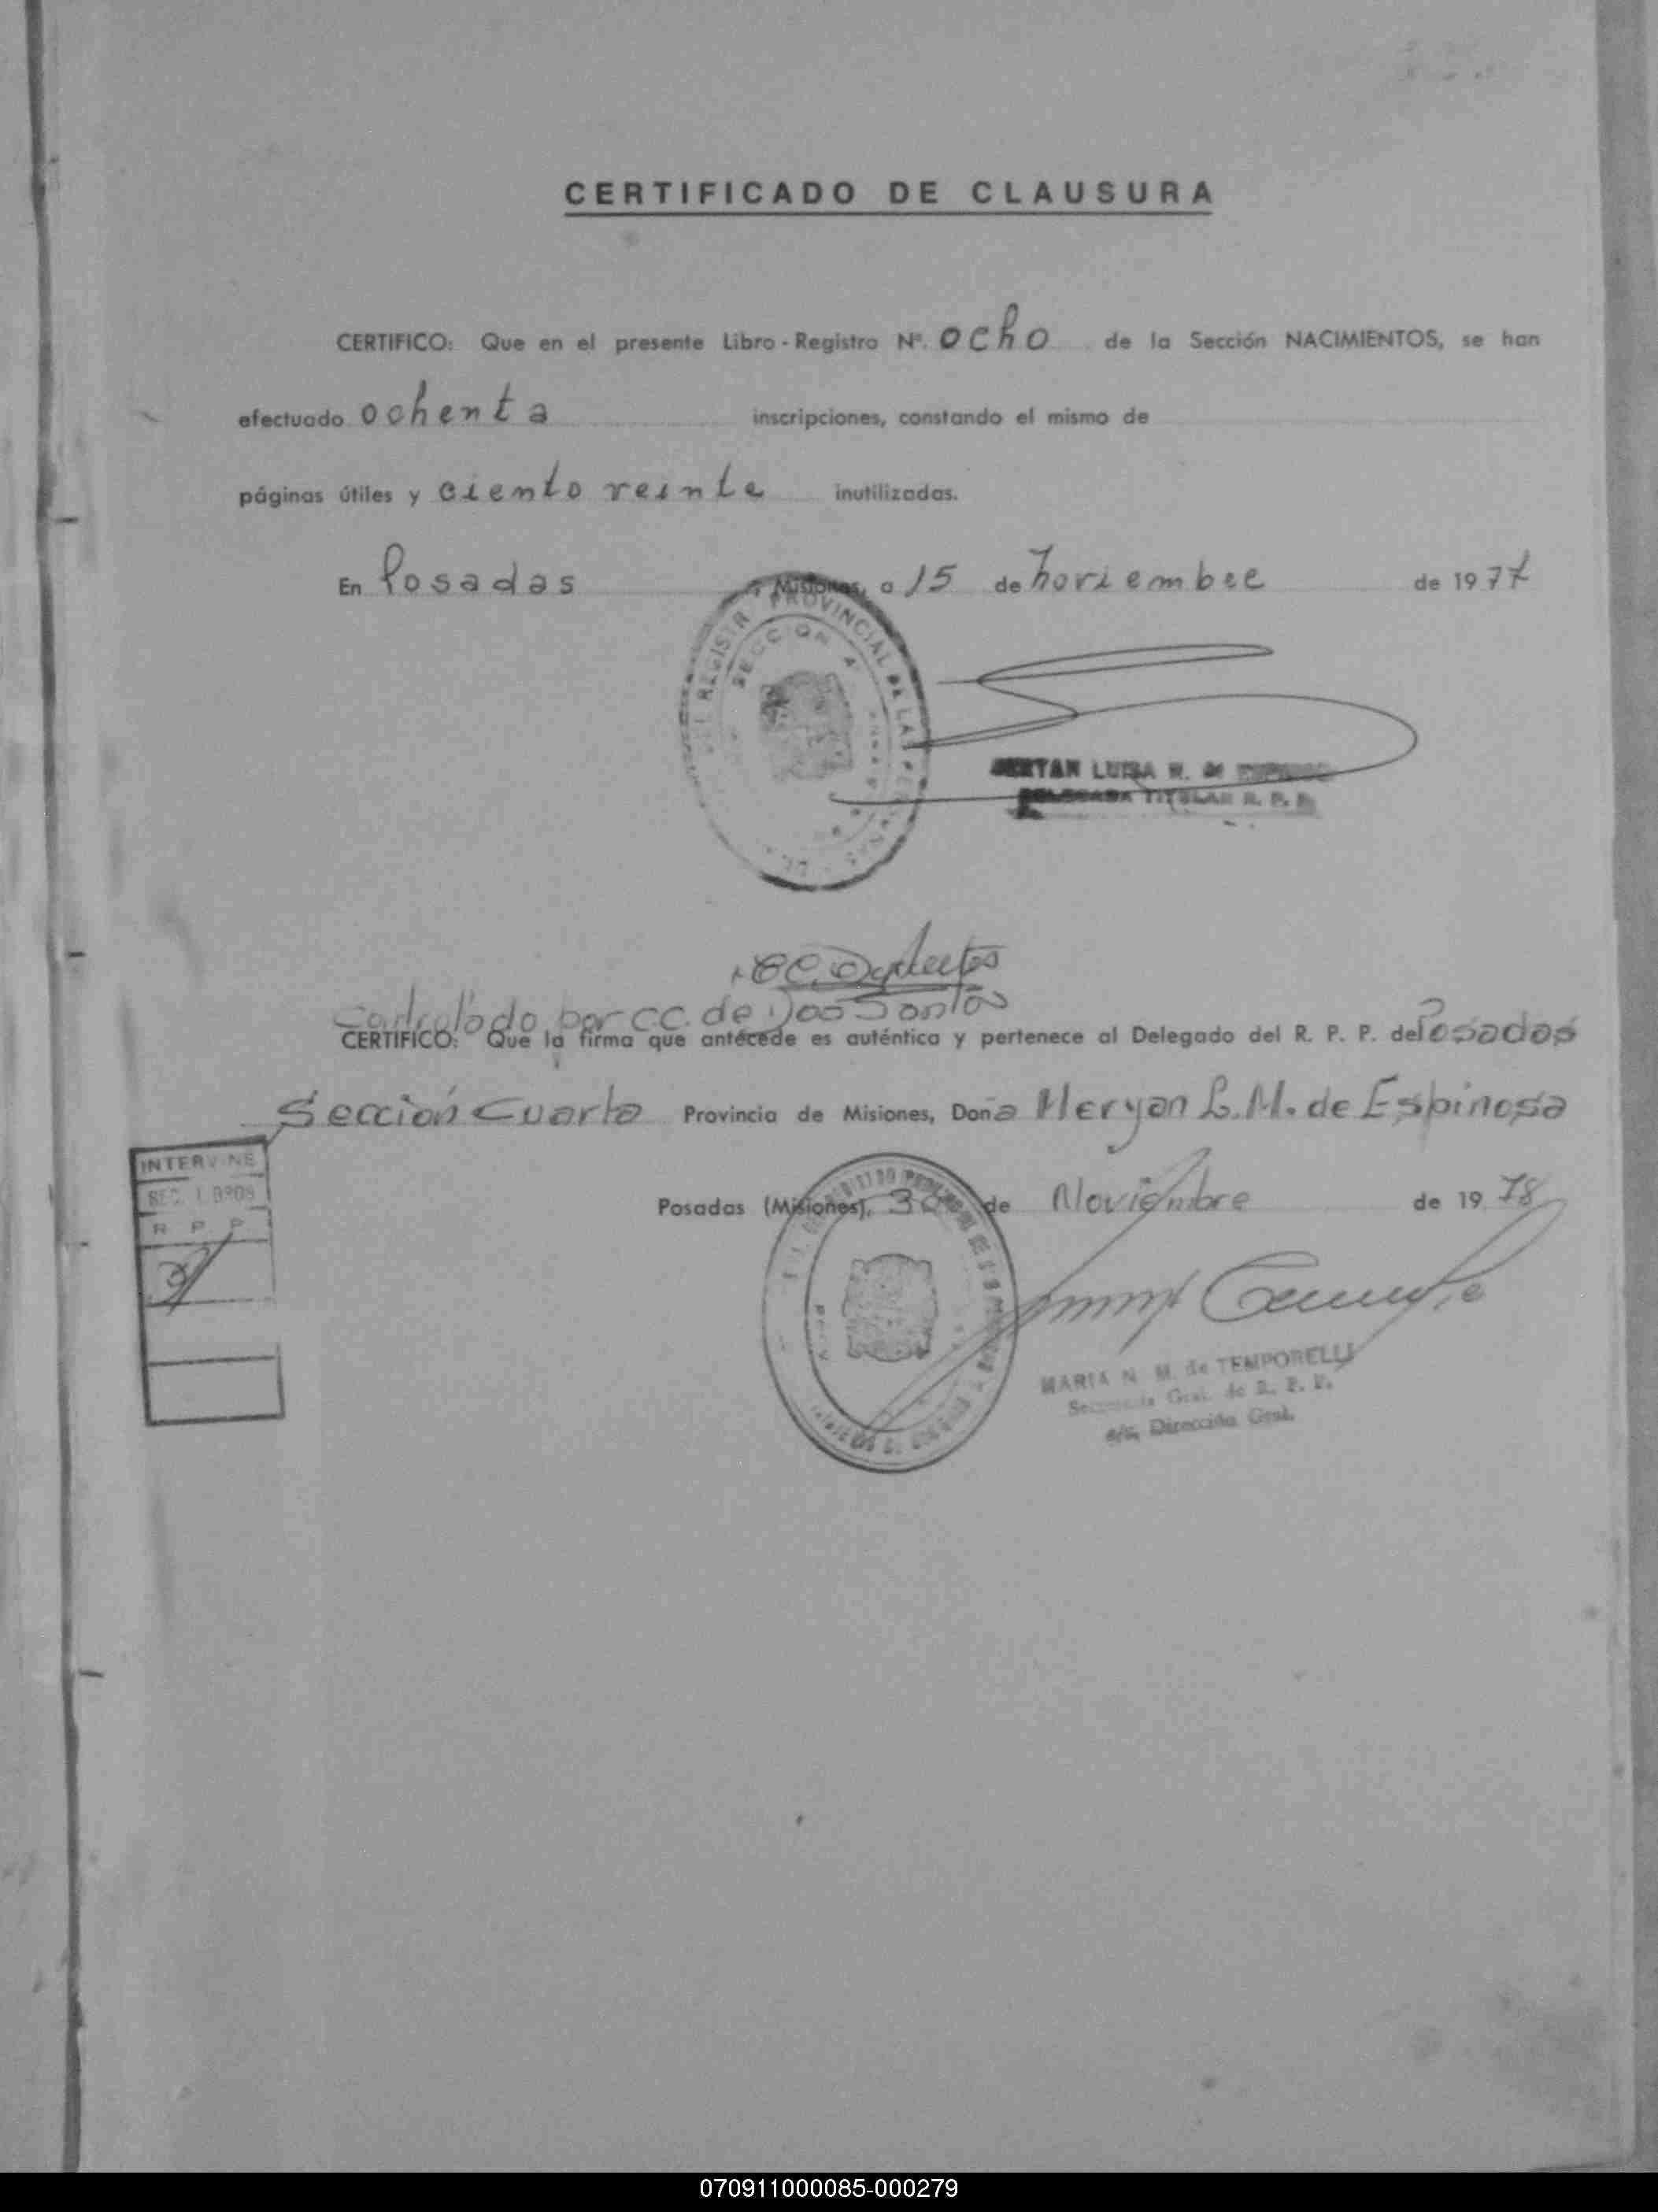 CERTIFICADO DE CLAUSURA
CERTIFICO: Que en el presente Libro - Registro Nº. ocho de la Sección NACIMIENTOS, se han
efectuado ochenta inscripciones, constando el mismo de
páginas útiles y ciento veinte inutilizadas.
En Posadas, Misiones, a 15 de noviembre de 1977
REGISTR PROVINCIAL DE LAS
SECCION 4
LUISA M. de
TITULAR R. P. P.
Controlado por C.C. de Dos Santos
CERTIFICO: Que la firma que antecede es auténtica y pertenece al Delegado del R. P. P. de Posadas
Sección Cuarta Provincia de Misiones, Doña Meryan L. M. de Espinosa
INTERVINE
SEC. LIBROS
R. P. P.
Posadas (Misiones), 30 de Noviembre de 1978
MARIA N. M. de TEMPORELLI
Secretaria Gral. de R. P. P.
a/c. Dirección Gral.
070911000085-000279